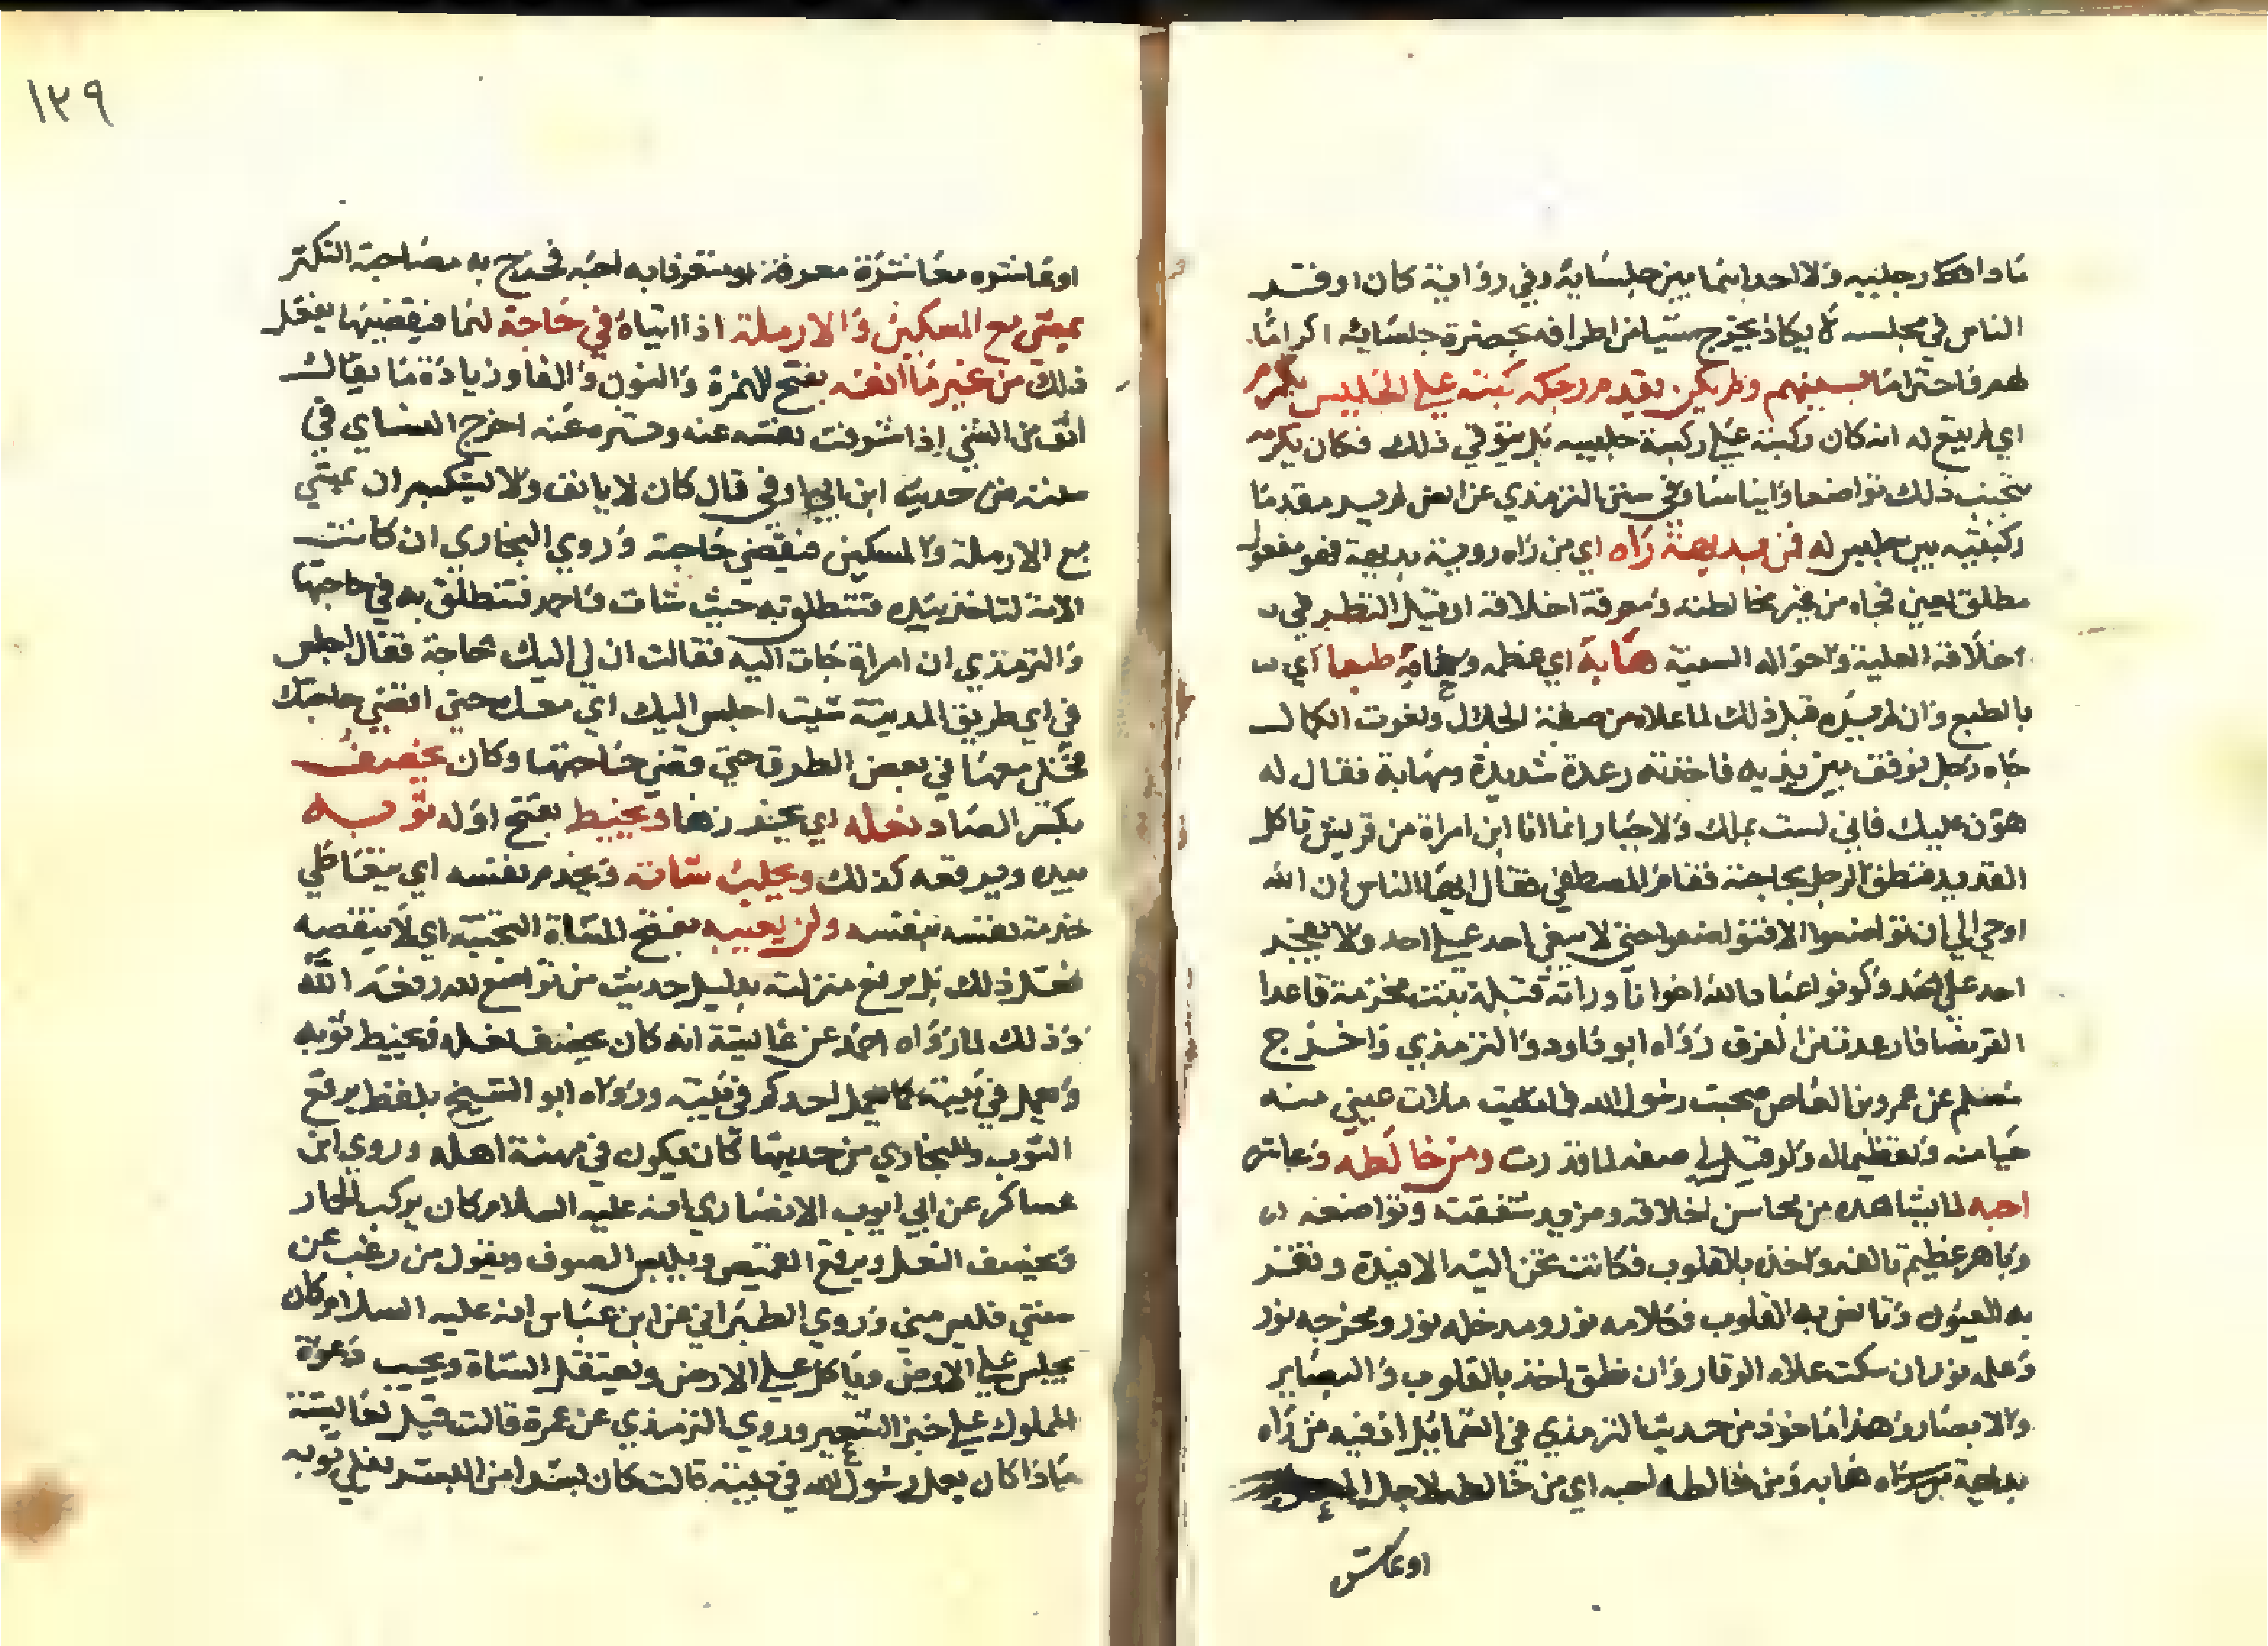 مادا رجليه ولا احدا بينها بين جلسايه وفي رواية كان اوقر
الناس في مجلسه لا يكاد يخرج شيا من اطرافه بحضرة جلسايه اكراما
لهم فاحتراما بينهم ولم يكن يقدم ركبته على الجليس يكرم
اي لم يقع له انه كان ركبته على ركبة جليسه بل يتوقى ذلك فكان يكرمه
بتجنب ذلك تواضعا وايناسا وفي سنن الترمذي عن انس لم ير مقدما
ركبتيه بين جليس له فمن بديهة راه اي من راه روية بديهة فهو مفعول
مطلق اي من فجاه من غير مخالطته ومعرفة اخلاقه او قبل النظر في
اخلاقه العلية واحواله السنية هابه اي عظمه وخافه طبعا اي
بالطبع وان لم يره قبل ذلك لما علاه من صفة الجلال ونعوت الكمال
جاه رجل فوقف بين يديه فاخذته رعدة شديدة ومهابة فقال له
هون عليك فاني لست بملك ولا جبار انما انا ابن امراة من قريش تاكل
القديد فنطق الرجل بحاجته فقام المصطفى فقال ايها الناس ان الله
اوحي الي ان تواضعوا الا فتواضعوا حتى لا يبغي احد على احد ولا يفخر
احد على احد وكونوا عباد الله اخوانا وراته قيلة بنت مخرمة قاعدا
القرفصا فارعدت من الفرق رواه ابو داود والترمذي واخرج
مسلم عن عمرو بن العاص صحبت رسول الله ما ملات عيني منه
حيا منه وتعظيما له ولو قيل لي صفه لما قدرت ومن خالطه وعاشره
احبه لما يشاهده من محاسن اخلاقه ومزيد شفقته وتواضعه
وباهر عظيم تالفه واخذه بالقلوب فكانت تحن اليه الافيدة وتقر
به العيون وتانس به القلوب فكلامه نور ومدخله نور ومخرجه نور
وعلمه نور ان سكت علاه الوقار وان نطق اخذ بالقلوب والبصاير
والابصار وهذا ماخوذ من حديث الترمذي في الشمايل ان فيه من راه
بداهة هابه ومن خالطه احبه اي من خالطه لاجل
او عاشر
١٣٩
او عاشره معاشرة معرفة او متعرفا به احبه فخرج به مصاحبة التكبر
يمشي مع المسكين والارملة اذا اتياه في حاجة لهما فيقضيها يفعل
ذلك من غير ما انفه بفتح الهمزة والنون والفا وزيادة ما يقال
انف من الشي اذا شرفت نفسه عنه وحرمه عنه اخرج النساي في
سننه من حديث ابن ابي اوفى قال كان لا يانف ولا يستكبر ان يمشي
مع الارملة والمسكين فيقضي حاجته وروي البخاري ان كانت
الامة لتاخذ بيده فتنطلق به حيث شات واحمد فتنطلق به في حاجتها
والترمذي ان امراة جات اليه فقالت ان لي اليك حاجة فقال اجلس
في اي طريق المدينة شيت اجلس اليك اي معك حتى اقضي حاجتك
فخلى معها في بعض الطرق حتى قضي حاجتها وكان يخصف
بكسر الصاد نعله اي يخرزها ويخيط بفتح اوله ثوبه
بيده ويرقعه كذلك ويحلب شاته ويخدم نفسه اي يتعاطي
خدمة نفسه بنفسه ولن يعيبه بفتح المثناة التحتية اي لا ينقصه
فعل ذلك بل يرفع منزلته بدليل حديث من تواضع لله رفعه الله
وذلك لما رواه احمد عن عايشة انه كان يخصف نعله ويخيط ثوبه
ويعمل في بيته كما يعمل احدكم في بيته ورواه ابو الشيخ بلفظ يرقع
الثوب وللبخاري من حديثها كان يكون في مهنة اهله وروي ابن
عساكر عن ابي ايوب الانصاري انه عليه السلام كان يركب الحمار
ويخصف النعل ويرقع القميص ويلبس الصوف ويقول من رغب عن
سنتي فليس مني وروي الطبراني عن ابن عباس انه عليه السلام كان
يجلس على الارض وياكل على الارض ويعتقل الشاة ويجيب دعوة
المملوك على خبز الشعير وروي الترمذي عن عمرة قالت قيل لعايشة
ماذا كان يعمل رسول الله في بيته قالت كان بشرا من البشر يفلي ثوبه